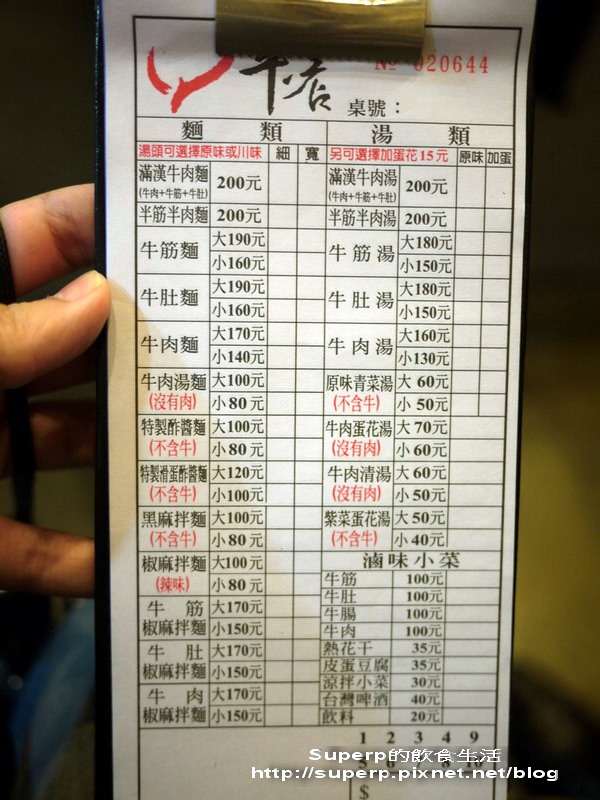 牛店
№ 020644
桌號：
麵 類
湯頭可選擇原味或川味 細 寬
滿漢牛肉麵 200元
(牛肉+牛筋+牛肚)
半筋半肉麵 200元
牛筋麵 大190元
小160元
牛肚麵 大190元
小160元
牛肉麵 大170元
小140元
牛肉湯麵 大100元
(沒有肉) 小 80 元
特製酢醬麵 大100元
(不含牛) 小 80 元
特製滑蛋酢醬麵 大120元
(不含牛) 小100元
黑麻拌麵 大100元
(不含牛) 小 80 元
椒麻拌麵 大100元
(辣味) 小 80 元
牛 筋 大170元
椒麻拌麵 小150元
牛 肚 大170元
椒麻拌麵 小150元
牛 肉 大170元
椒麻拌麵 小150元
湯 類
另可選擇加蛋花15元 原味 加蛋
滿漢牛肉湯 200元
(牛肉+牛筋+牛肚)
半筋半肉湯 200元
牛筋湯 大180元
小150元
牛肚湯 大180元
小150元
牛肉湯 大160元
小130元
原味青菜湯 大 60元
(不含牛) 小 50元
牛肉蛋花湯 大 70元
(沒有肉) 小 60元
牛肉清湯 大 60元
(沒有肉) 小 50元
紫菜蛋花湯 大 50元
(不含牛) 小 40元
滷味小菜
牛筋 100元
牛肚 100元
牛腸 100元
牛肉 100元
熱花干 35元
皮蛋豆腐 35元
涼拌小菜 30元
台灣啤酒 40元
飲料 20元
1 2 3 4 9
5 6 7 8 10
$
Superp的飲食生活
http://superp.pixnet.net/blog